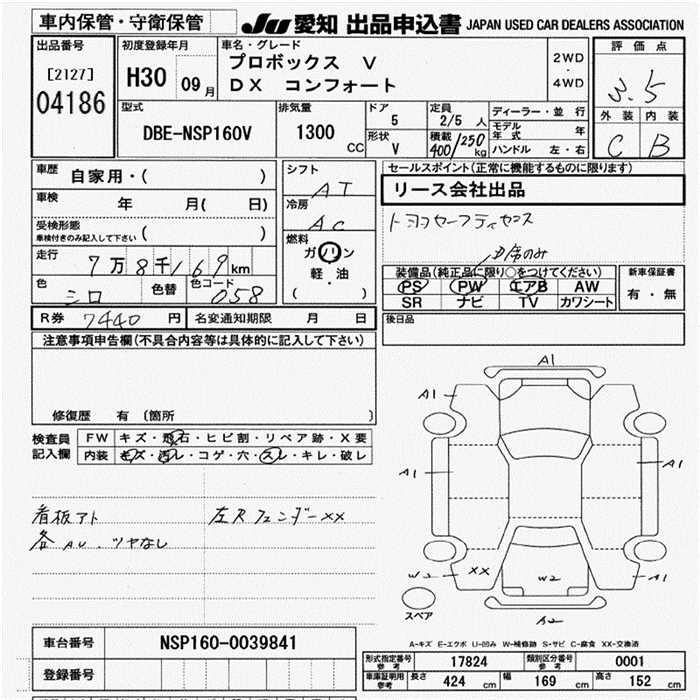 車内保管・守衛保管
JU 愛知 出品申込書 JAPAN USED CAR DEALERS ASSOCIATION
出品番号
[2127]
04186
初度登録年月
H30 09月
車名・グレード
プロボックス V
DX コンフォート
2WD
・
4WD
評価点
3.5
外装 内装
C B
型式
DBE-NSP160V
排気量
1300 CC
ドア
5
形状
V
定員
2/5 人
積載
400/250 kg
ディーラー・並行
モデル年式 年
ハンドル 左・右
車歴
自家用・( )
車検 年 月( 日)
受検形態
車検付きのみ記入して下さい ( )
走行
7万8千169km
色 シロ 色替 色コード 058
シフト
AT
冷房
AC
燃料
ガソリン
軽・油
( )
セールスポイント(正常に機能するものに限ります)
リース会社出品
トヨタセーフティセンス
装備品(純正品に限り○をつけてください)
PS PW エアB AW
SR ナビ TV カワシート
新車保証書
有・無
R券 7440 円 名変通知期限 月 日
後日品
注意事項申告欄(不具合内容等は具体的に記入して下さい)
修復歴 有 (箇所 )
検査員記入欄
FW キズ・飛石・ヒビ割・リペア跡・X要
内装 キズ・汚レ・コゲ・穴・スレ・キレ・破レ
看板アト
各AU.ツヤなし
左Rフェンダーxx
A1
A1
A1
A1
A1
W2
XX
W2
A2
スペア
A-キズ E-エクボ U-凹み W-補修跡 S-サビ C-腐食 XX-交換済
車台番号 NSP160-0039841
登録番号
形式指定番号 参考 17824 類別区分番号 参考 0001
車庫証明用 参考 長さ 424 cm 幅 169 cm 高さ 152 cm